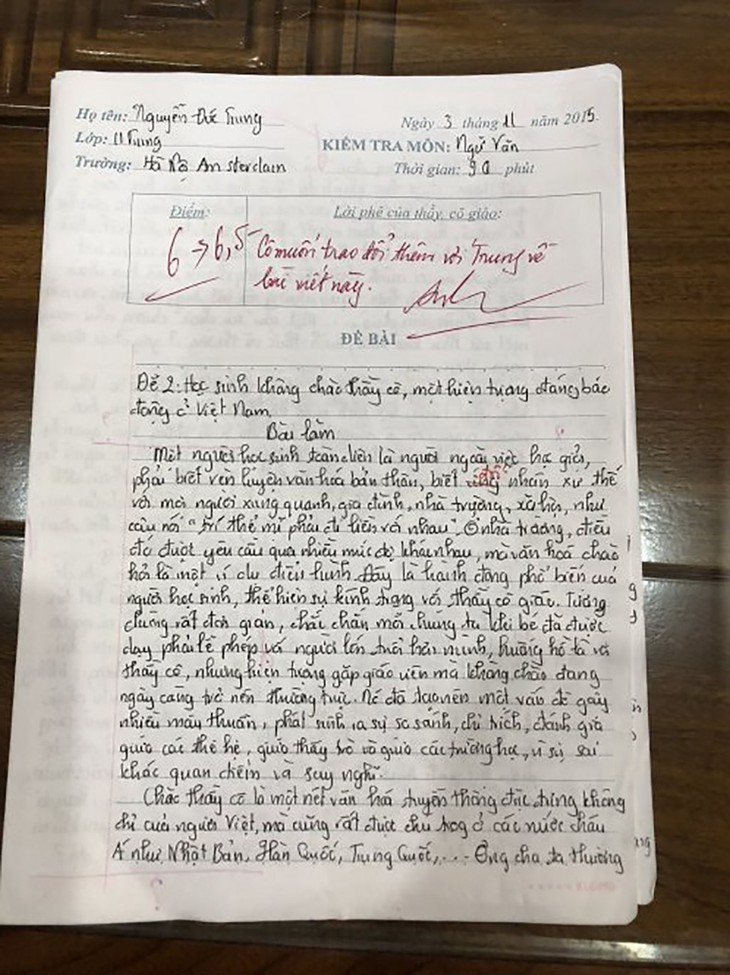 Họ tên: Nguyễn Đức Trung
Ngày 3 tháng 11 năm 2015.
Lớp: 11 Trung
KIỂM TRA MÔN: Ngữ Văn
Trường: Hà Nội Amsterdam
Thời gian: 90 phút
Điểm:
Lời phê của thầy, cô giáo:
6 → 6,5
Cô muốn trao đổi thêm với Trung về
bài viết này.
ĐỀ BÀI
Đề 2: Học sinh không chào thầy cô, một hiện tượng đáng báo
động ở Việt Nam
Bài làm
Một người học sinh toàn diện là người ngoài việc học giỏi,
phải biết rèn luyện văn hóa bản thân, biết đối nhân xử thế
với mọi người xung quanh, gia đình, nhà trường, xã hội, như
câu nói "trí thể mĩ phải đi liền với nhau". Ở nhà trường, điều
đó được yêu cầu qua nhiều mức độ khác nhau, mà văn hoá chào
hỏi là một ví dụ điển hình. Đây là hành động phổ biến của
người học sinh, thể hiện sự kính trọng với thầy cô giáo. Tưởng
chừng rất đơn giản, chắc chắn mỗi chúng ta khi bé đã được
dạy phải lễ phép với người lớn tuổi hơn mình, huống hồ là với
thầy cô, nhưng hiện tượng gặp giáo viên mà không chào đang
ngày càng trở nên thường trực. Nó đã tạo nên một vấn đề gây
nhiều mâu thuẫn, phát sinh ra sự so sánh, chỉ trích, đánh giá
giữa các thế hệ, giữa thầy trò và giữa các trường học, vì sự sai
khác quan điểm và suy nghĩ.
Chào thầy cô là một nét văn hoá truyền thống đặc trưng không
chỉ của người Việt, mà cũng rất được chú trọng ở các nước châu
Á như Nhật Bản, Hàn Quốc, Trung Quốc,... Ông cha ta thường